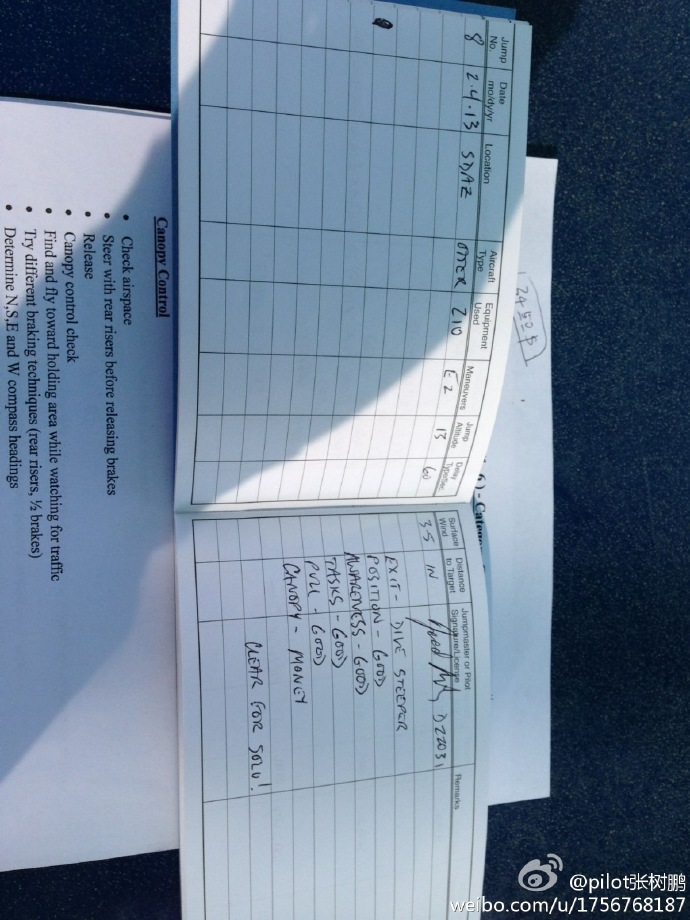 Jump No.
Date mo/dy/yr
Location
Aircraft Type
Equipment Used
Maneuvers
Jump Altitude
Delay
8
2.4.13
SDAZ
OTTER
210
E2
13
60
Surface Wind
Distance to Target
Jumpmaster or Pilot Signature/License
Remarks
3-5
IN
D22031
EXIT - DIVE STEEPER
POSITION - GOOD
AWARENESS - GOOD
TASKS - GOOD
PULL - GOOD
CANOPY - MONEY
CLEAR FOR SOLO!
6) - Categ
Canopy Control
• Check airspace
• Steer with rear risers before releasing brakes
• Release
• Canopy control check
• Find and fly toward holding area while watching for traffic
• Try different braking techniques (rear risers, ½ brakes)
• Determine N,S,E and W compass headings
@pilot张树鹏
weibo.com/u/1756768187